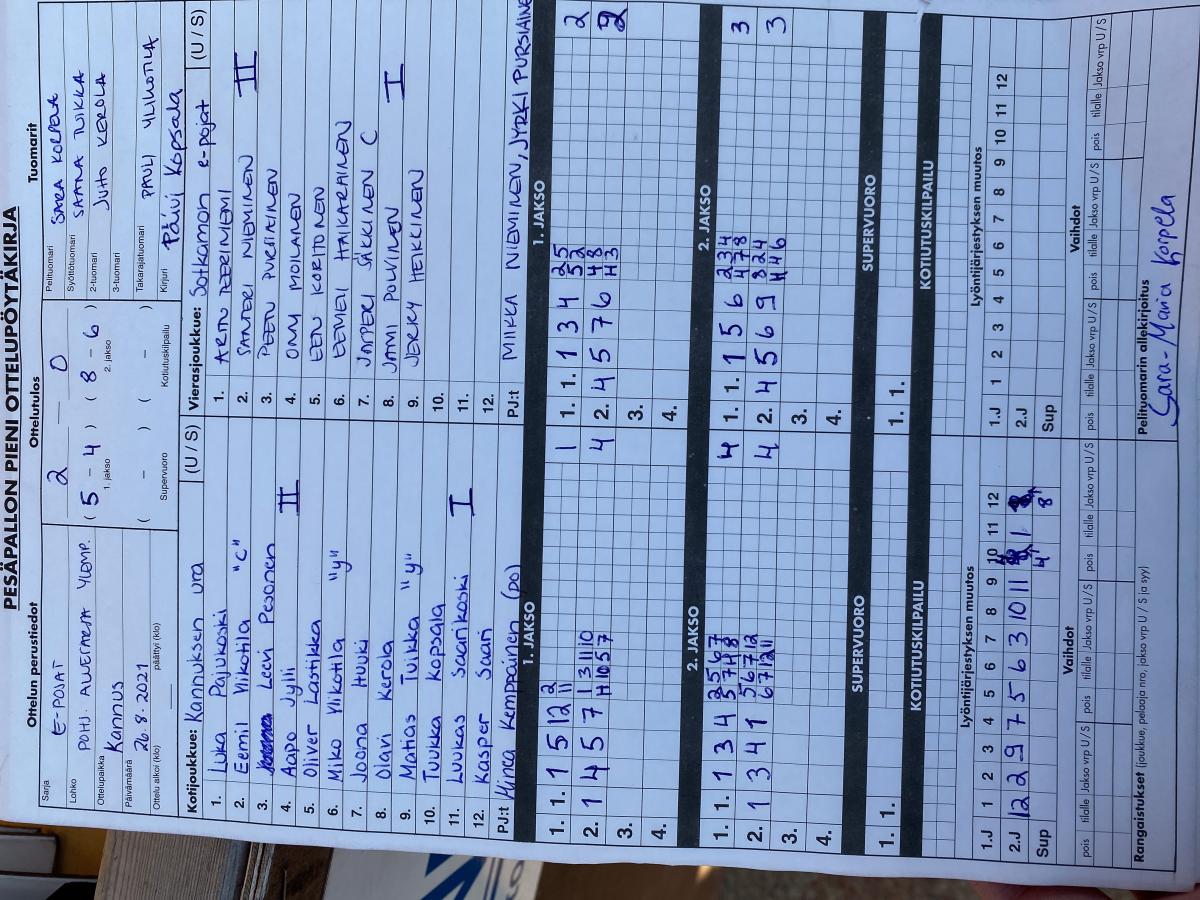 PESÄPALLON PIENI OTTELUPÖYTÄKIRJA
Ottelun perustiedot
Sarja
E-POJAT
Lohko
POHJ. ALUESARJA YLEMP.
Ottelupaikka
Kannus
Päivämäärä
26.8.2021
Ottelu alkoi (klo) päättyi (klo)
Ottelutulos
2 — 0
( 5 - 4 ) ( 8 - 6 )
1. jakso 2. jakso
( - ) ( - )
Supervuoro Kotiutuskilpailu
Tuomarit
Pelituomari SARA KORPELA
Syöttötuomari SAARA TUIKKA
2-tuomari JUHO KEROLA
3-tuomari
Takarajatuomari PAULI YLIKOTILA
Kirjuri Päivi Kopsala
Kotijoukkue: Kannuksen Ura (U / S)
1. Luka Pajukoski
2. Eemil Ylikotila "C"
3. Leevi Pesonen
4. Aapo Jylli II
5. Oliver Lastikka
6. Miko Ylikotila "y"
7. Joona Huuki
8. Olavi Kerola
9. Matias Tuikka "y"
10. Tuukka Kopsala
11. Luukas Saarikoski I
12. Kasper Saari
PJ:t Minca Kemppainen (po)
Vierasjoukkue: Sotkamon e-pojat (U / S)
1. ARTTU PEERINIEMI
2. SANTERI NIEMINEN II
3. PEETU PURSIAINEN
4. ONNI MOILANEN
5. EETU KORTONEN
6. EEMELI HALKARAINEN
7. JASPERI SÄKKINEN C
8. JAMI POLVINEN I
9. JERKY HEIKKINEN
10.
11.
12.
PJ:t MIIKKA NIEMINEN, JYRKI PURSIAINEN
1. JAKSO
1. 1. 1 5 12 2 11 1
2. 1 4 5 7 1 3 11 10 H 10 5 7 4
3.
4.
1. JAKSO
1. 1. 1 3 4 2 5 5 2 2
2. 4 5 7 6 4 8 H 3 2
3.
4.
2. JAKSO
1. 1. 1 3 4 2 5 6 7 5 7 H 8 4
2. 1 3 4 1 5 6 7 12 6 7 12 11 4
3.
4.
2. JAKSO
1. 1. 1 5 6 2 3 4 4 7 8 3
2. 4 5 6 9 8 2 4 H 4 6 3
3.
4.
SUPERVUORO
1. 1.
SUPERVUORO
1. 1.
KOTIUTUSKILPAILU
KOTIUTUSKILPAILU
Lyöntijärjestyksen muutos
1.J 1 2 3 4 5 6 7 8 9 10 11 12
2.J 12 2 9 7 5 6 3 10 11 1
Sup 4 8
Lyöntijärjestyksen muutos
1.J 1 2 3 4 5 6 7 8 9 10 11 12
2.J
Sup
Vaihdot
pois tilalle Jakso vrp U / S pois tilalle Jakso vrp U / S pois tilalle Jakso vrp U / S
Vaihdot
pois tilalle Jakso vrp U / S pois tilalle Jakso vrp U / S pois tilalle Jakso vrp U / S
Rangaistukset (joukkue, pelaaja nro, jakso vrp U / S ja syy)
Pelituomarin allekirjoitus
Sara-Maria Korpela